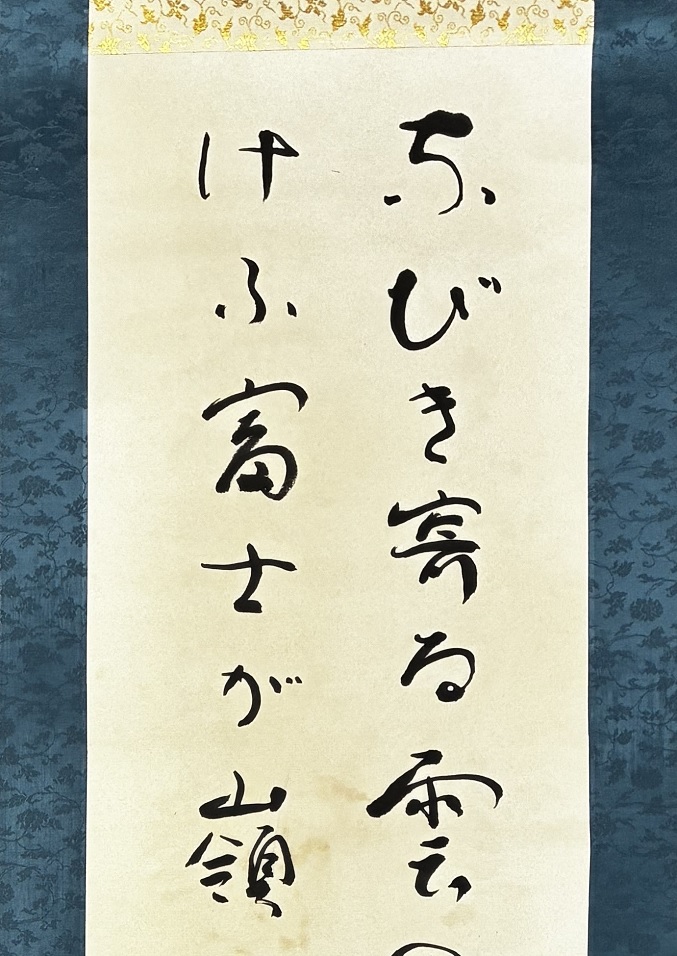 なびき寄る雲の
けふ富士が嶺